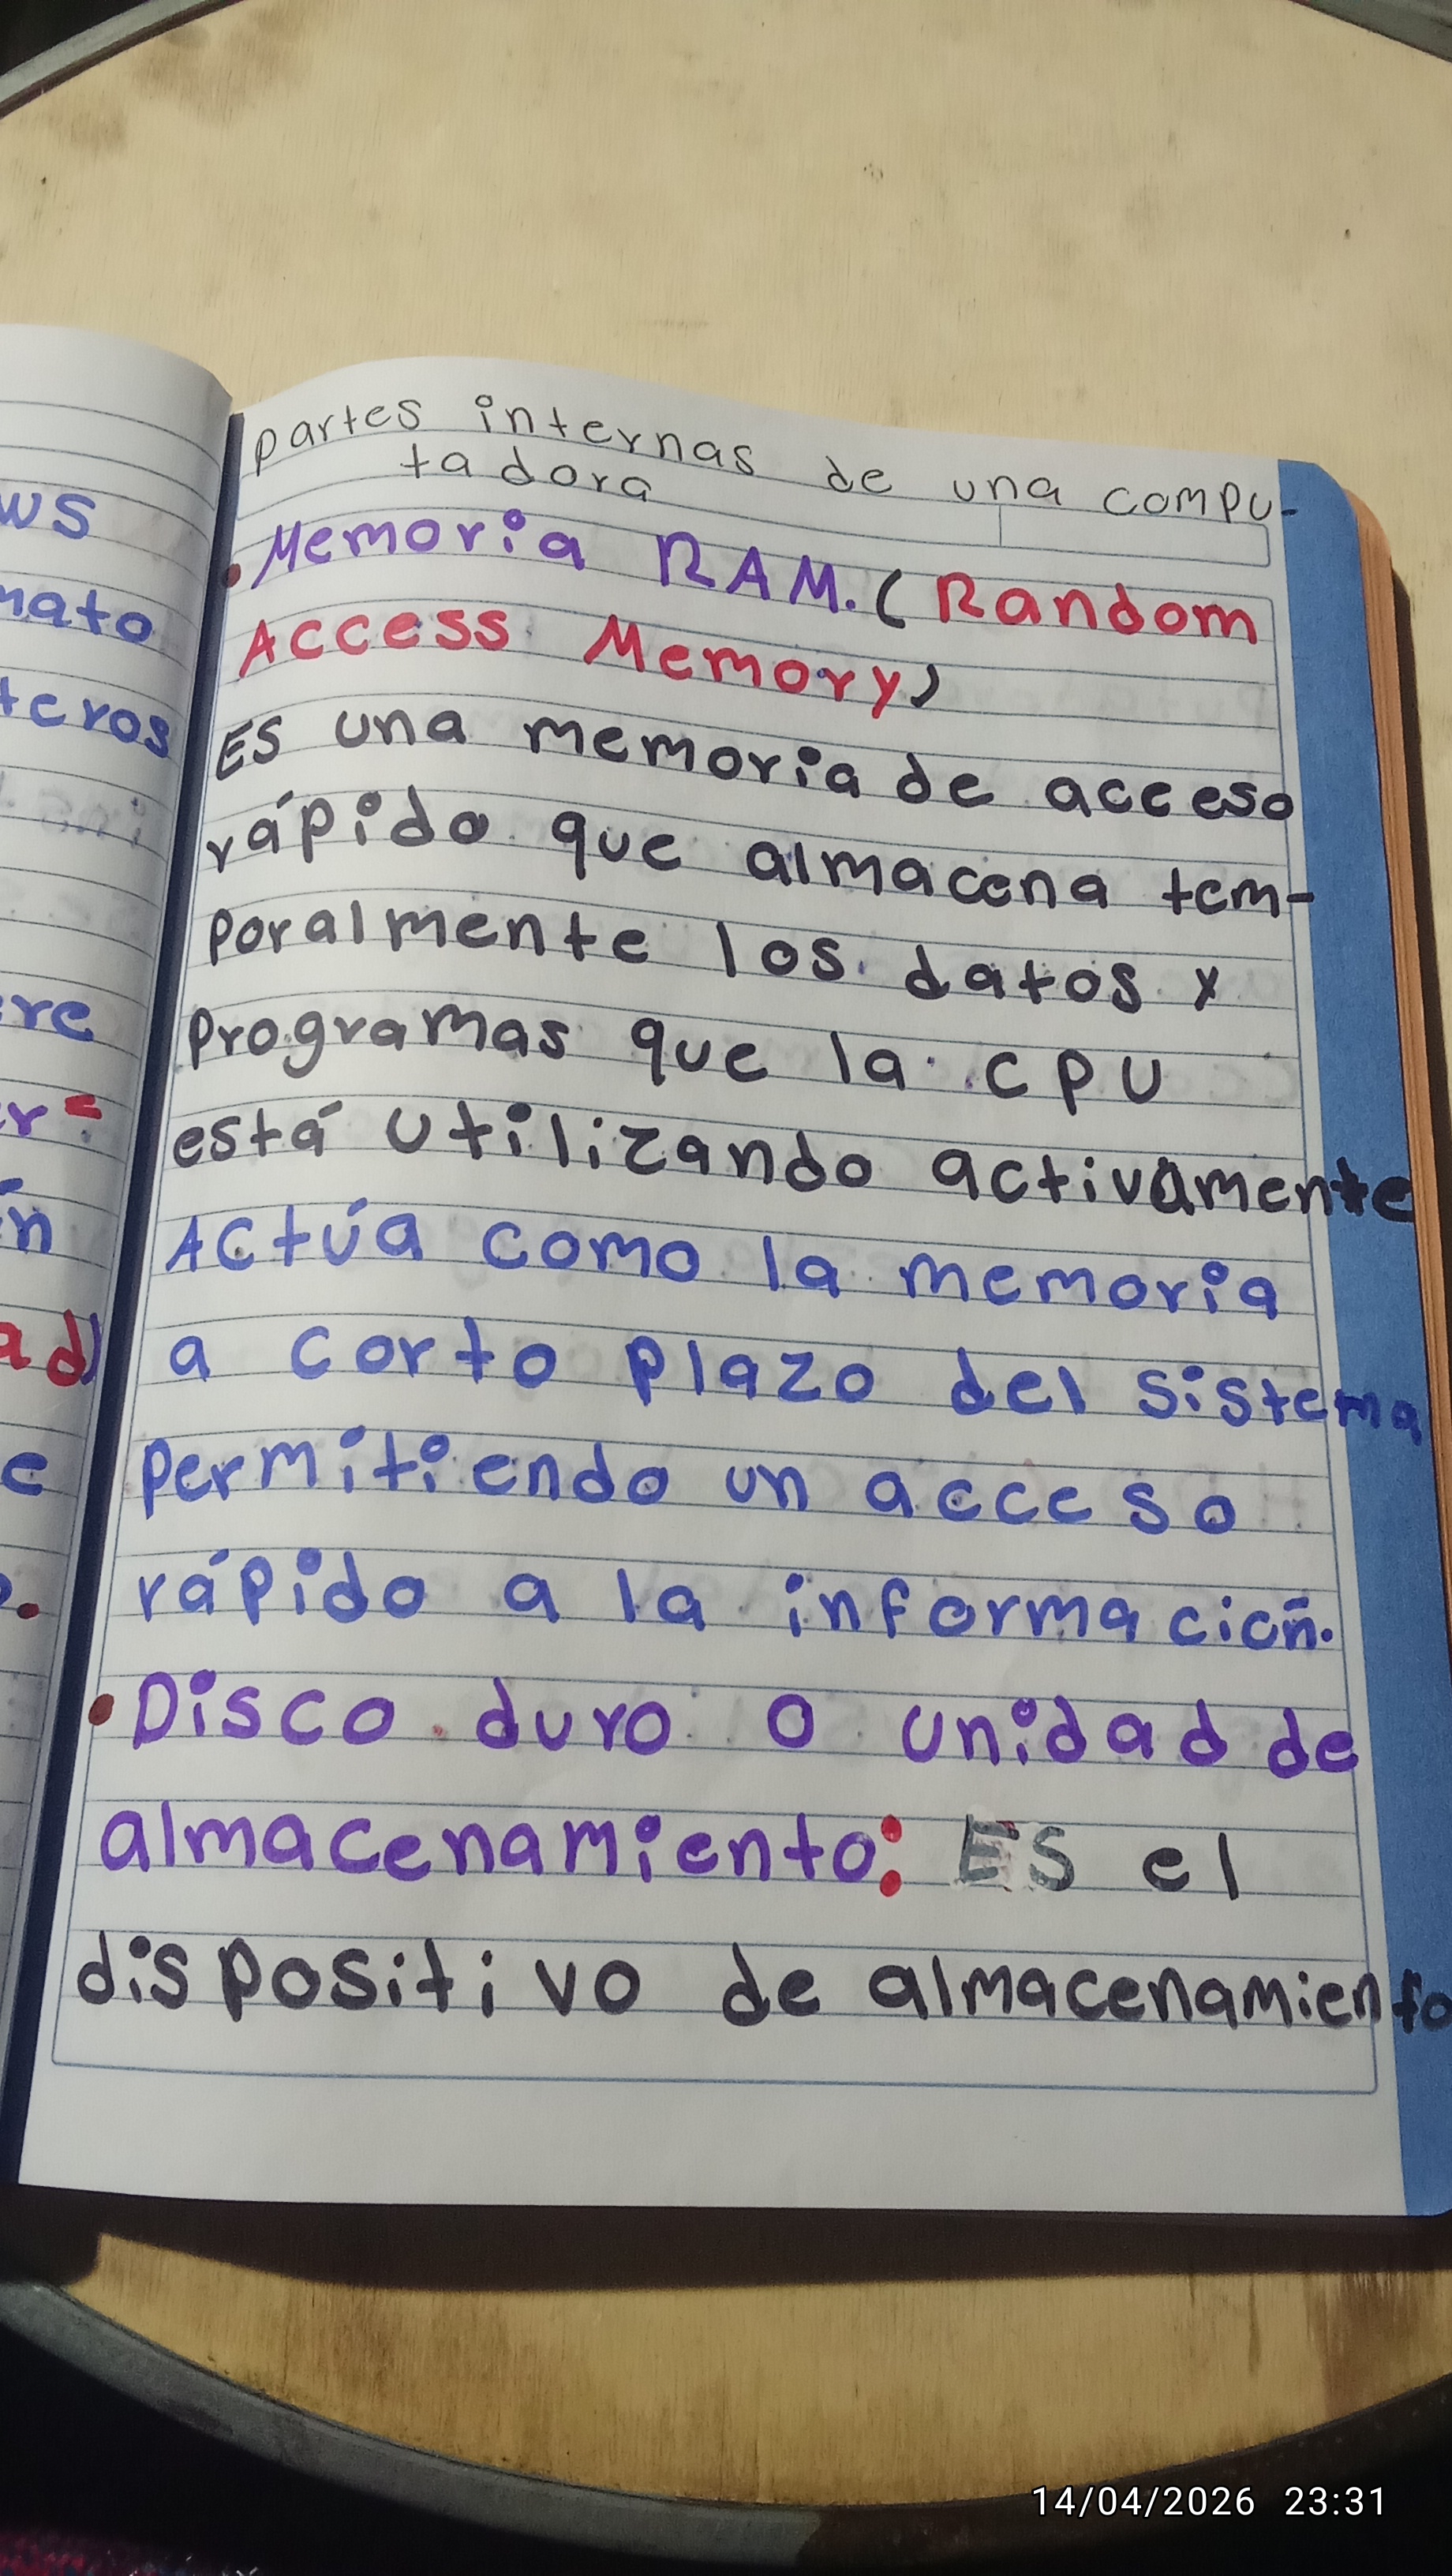 partes internas de una compu-
tadora
• Memoria RAM. (Random
Access Memory)
Es una memoria de acceso
rápido que almacena tem-
poralmente los datos y
programas que la CPU
está utilizando activamente
Actúa como la memoria
a corto plazo del sistema
permitiendo un acceso
rápido a la información.
• Disco duro o unidad de
almacenamiento: Es el
dispositivo de almacenamiento
ws
mato
teros
re
er=
ín
ad)
e
.
14/04/2026 23:31